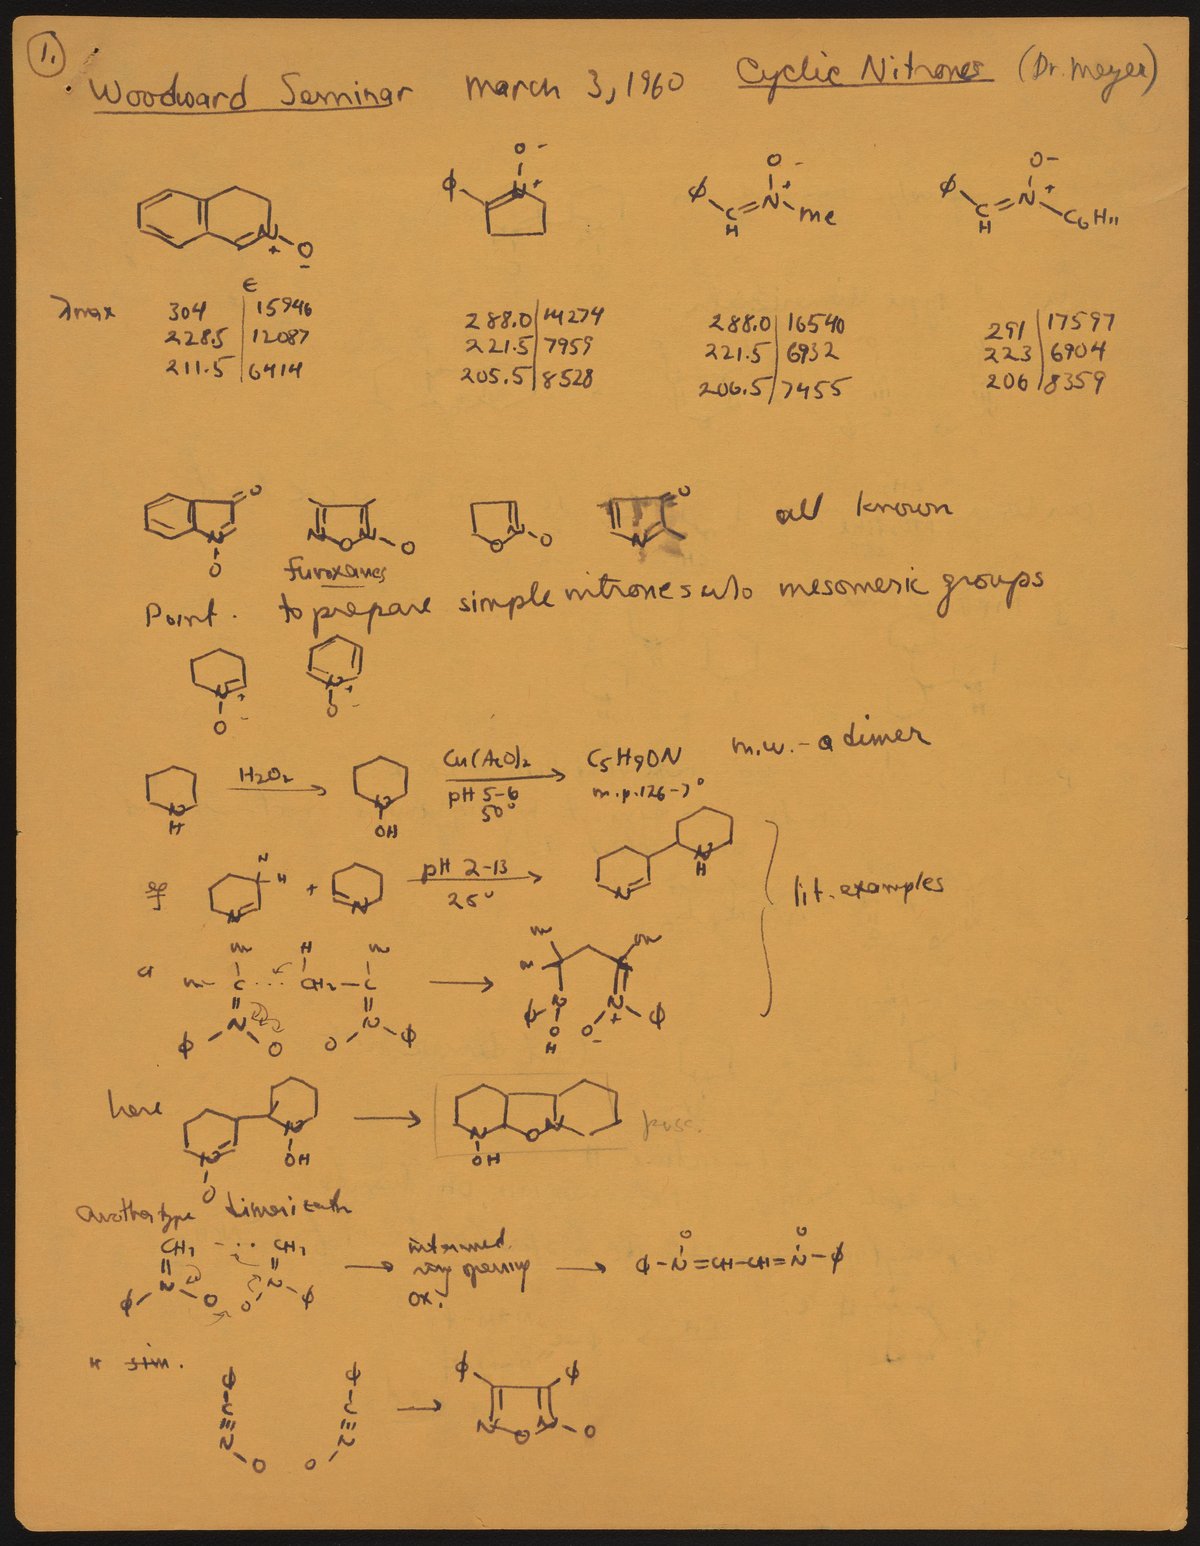 1.
Woodward Seminar March 3, 1960 Cyclic Nitrones (Dr. Meyer)
O- O- O-
φ N+ φ C=N+ Me φ C=N+ C6H11
H H
N+ O-
λmax ε
304 15946 288.0 14274 288.0 16540 291 17597
228.5 12087 221.5 7959 221.5 6932 223 6904
211.5 6414 205.5 8528 206.5 7455 206 8359
O N O N O N O O N O O N all known
furoxanes
Point. to prepare simple nitrones w/o mesomeric groups
N+ O- N+ O-
N H H2O2 N OH Cu(AcO)2 C5H9ON m.w. - a dimer
pH 5-6 m.p. 126-7°
50°
cf N H + N pH 2-13 N N H lit. examples
25°
m H m m m m
m- C ... CH2-C
N N N N+
φ O O φ φ O H O- φ
here N O N OH N OH O N poss.
another type dimerizatn
CH2 ... CH2 intermed. O O
N N ring opening φ-N=CH-CH=N-φ
φ O O φ ox.
" sim.
φ φ φ φ
C C
N N N O N-O
O O